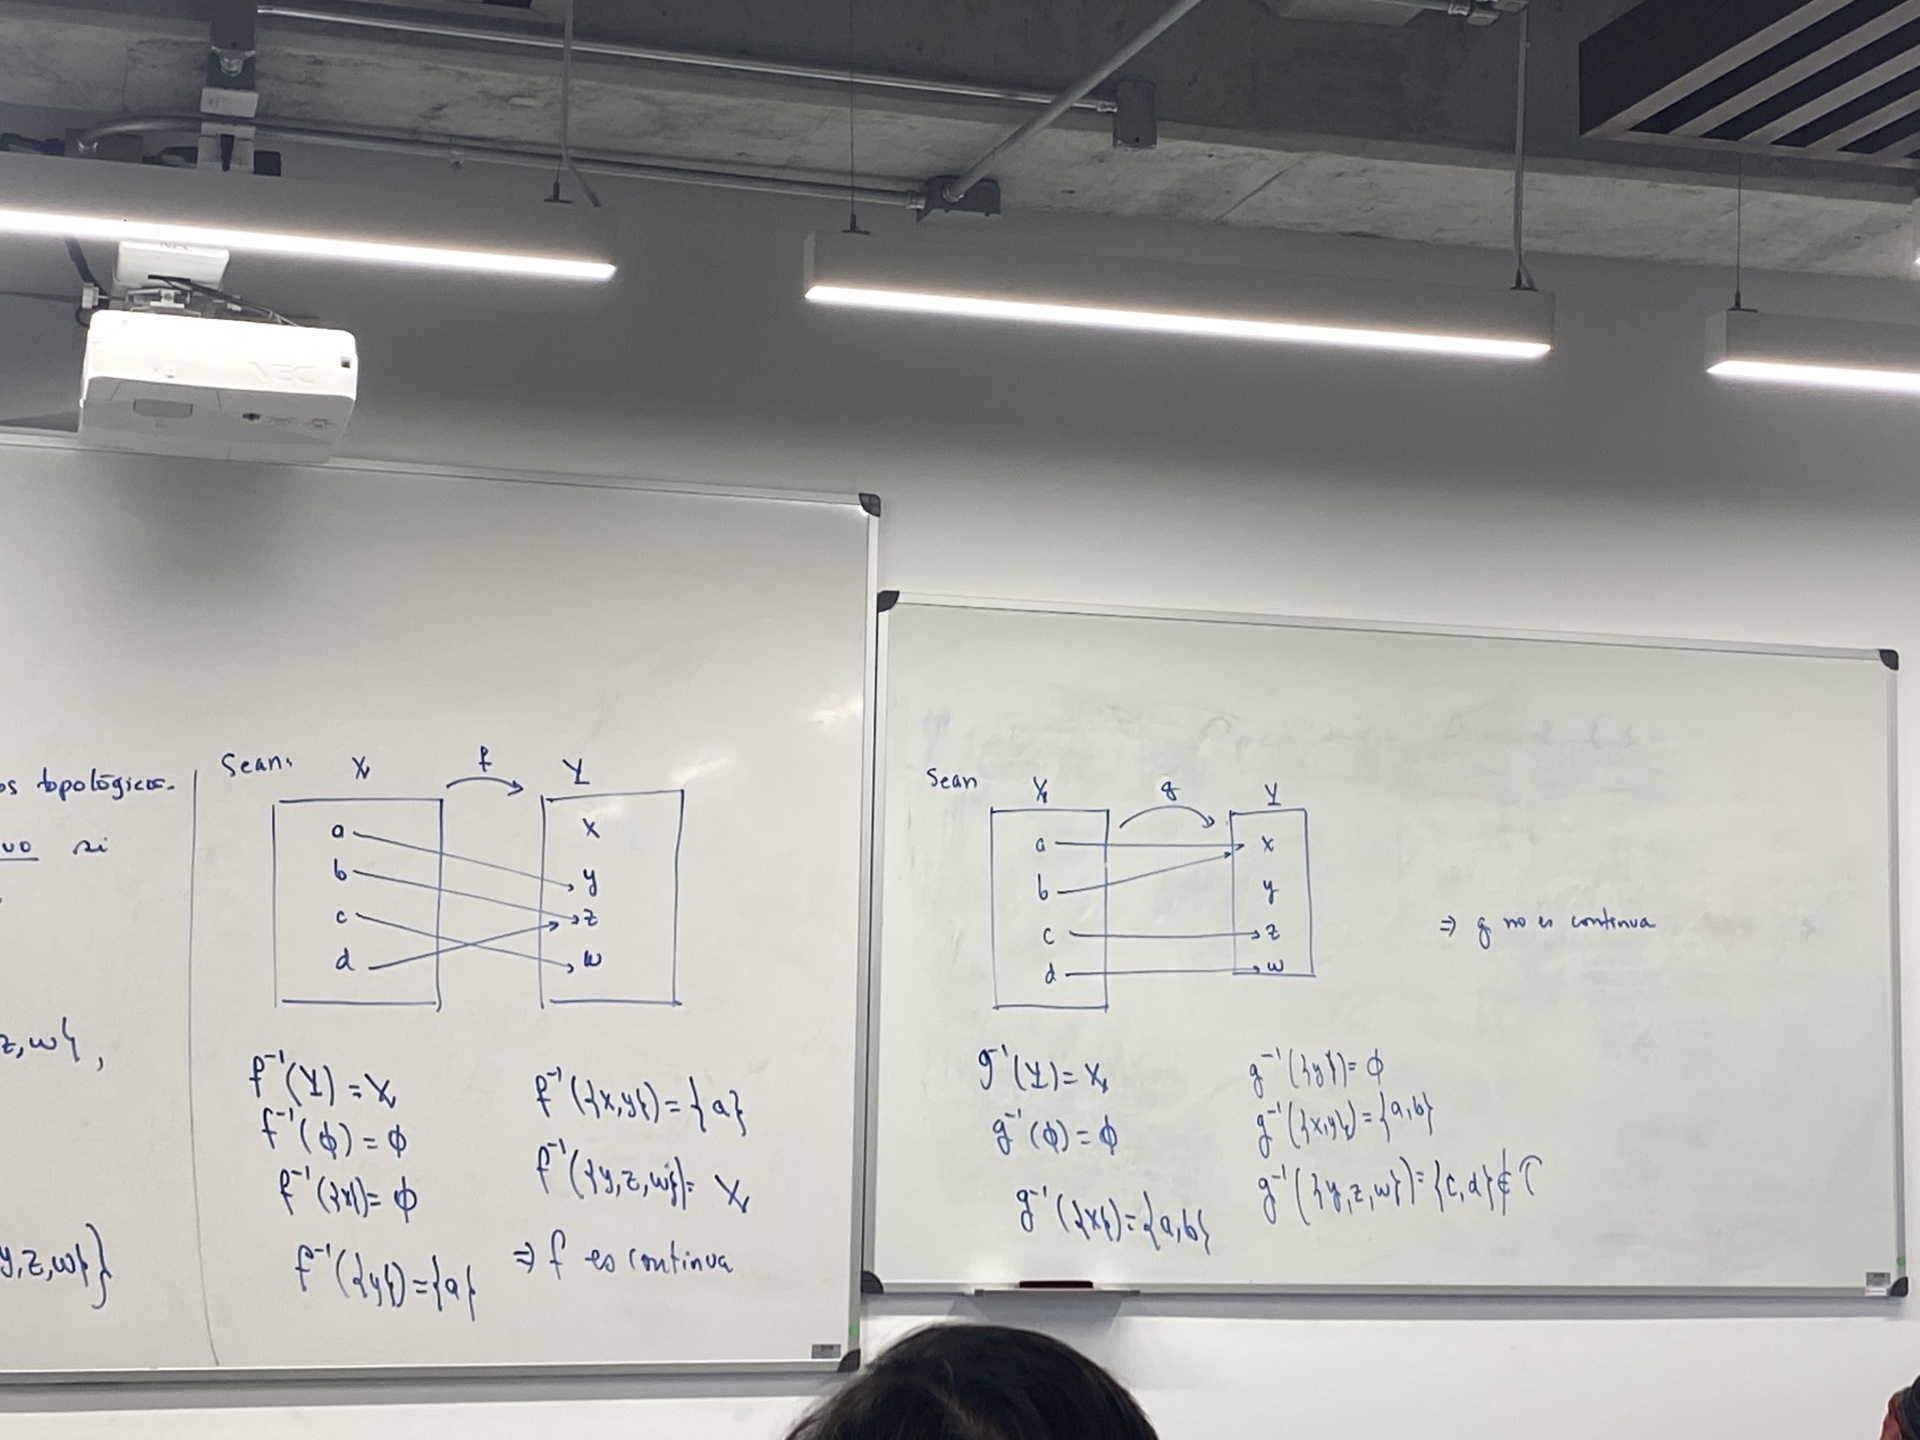 NEC
os topológicos.
uvo si
z,w},
y,z,w}}
Sean:
X f Y
a x
b y
c z
d w
f⁻¹(Y) = X
f⁻¹(ϕ) = ϕ
f⁻¹({x}) = ϕ
f⁻¹({y}) = {a}
f⁻¹({x,y}) = {a}
f⁻¹({y,z,w}) = X
⇒ f es continua
Sean
X g Y
a x
b y
c z
d w
⇒ g no es continua
g⁻¹(Y) = X
g⁻¹(ϕ) = ϕ
g⁻¹({x}) = {a,b}
g⁻¹({y}) = ϕ
g⁻¹({x,y}) = {a,b}
g⁻¹({y,z,w}) = {c,d} ∉ τ